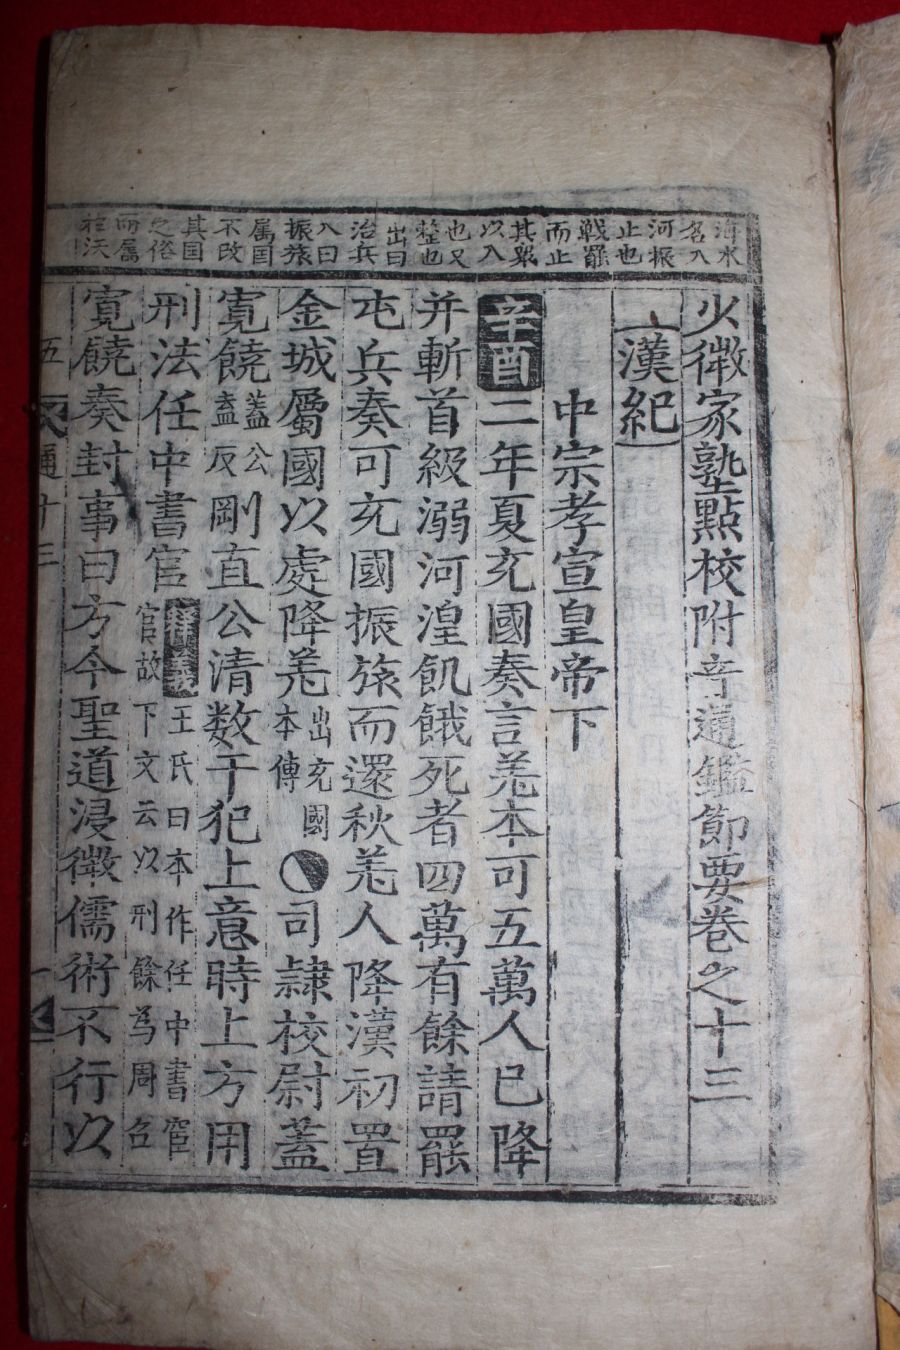 水
名入
河振
止也
戦罷
而止
其眾
以入
也又
整也
出曰
治兵
入曰
振旅
属国
不改
其国
之俗
而属
少微家塾點校附音通鑑節要卷之十三
漢紀
中宗孝宣皇帝下
辛酉二年夏充國奏言羗本可五萬人已降
并斬首級溺河湟飢餓死者四萬有餘請罷
屯兵奏可充國振旅而還秋羗人降漢初置
金城屬國以處降羗出充國本傳司隷校尉蓋
寛饒蓋公盍反剛直公清数干犯上意時上方用
刑法任中書官王氏曰本作任中書宦官故下文云以刑餘為周召
寛饒奏封事曰方今聖道浸微儒術不行以
五 通十三 一